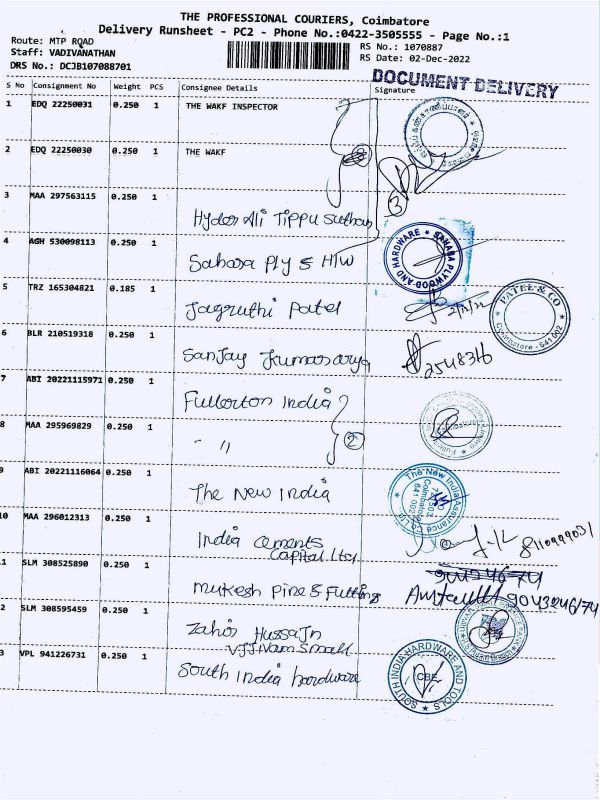 THE PROFESSIONAL COURIERS, Coimbatore
Delivery Runsheet - PC2 - Phone No.:0422-3505555 - Page No.:1
Route: MTP ROAD
Staff: VADIVANATHAN
DRS No.: DCJB107088701
RS No.: 1070887
RS Date: 02-Dec-2022
DOCUMENT DELIVERY
S No Consignment No Weight PCS Consignee Details Signature
1 EDQ 22250031 0.250 1 THE WAKF INSPECTOR
2 EDQ 22250030 0.250 1 THE WAKF
3
3 MAA 297563115 0.250 1
Hyder Ali Tippu Sulthan
4 AGH 530098113 0.250 1
Sahara Ply & H/W
SAHARA PLYWOOD AND HARDWARE
5 TRZ 165304821 0.185 1
Jagruthi Patel 2/12/22
PATEL & CO
Coimbatore - 641 002
6 BLR 210519318 0.250 1
Sanjay Kumar arya
7 ABI 20221115971 0.250 1
Fullerton India
8 MAA 295969829 0.250 1
" 2
9 ABI 20221116064 0.250 1
The New India
The New India Assurance
Coimbatore
641 002
10 MAA 296012313 0.250 1
India Cements
Capital Ltd
8110999031
.1 SLM 308525890 0.250 1
Mukesh Pipe & Fitting 9043246174
2 SLM 308595459 0.250 1
Zahir Hussain
3 VPL 941226731 0.250 1
South India hardware
SOUTH INDIA HARDWARE AND TOOLS
CBE